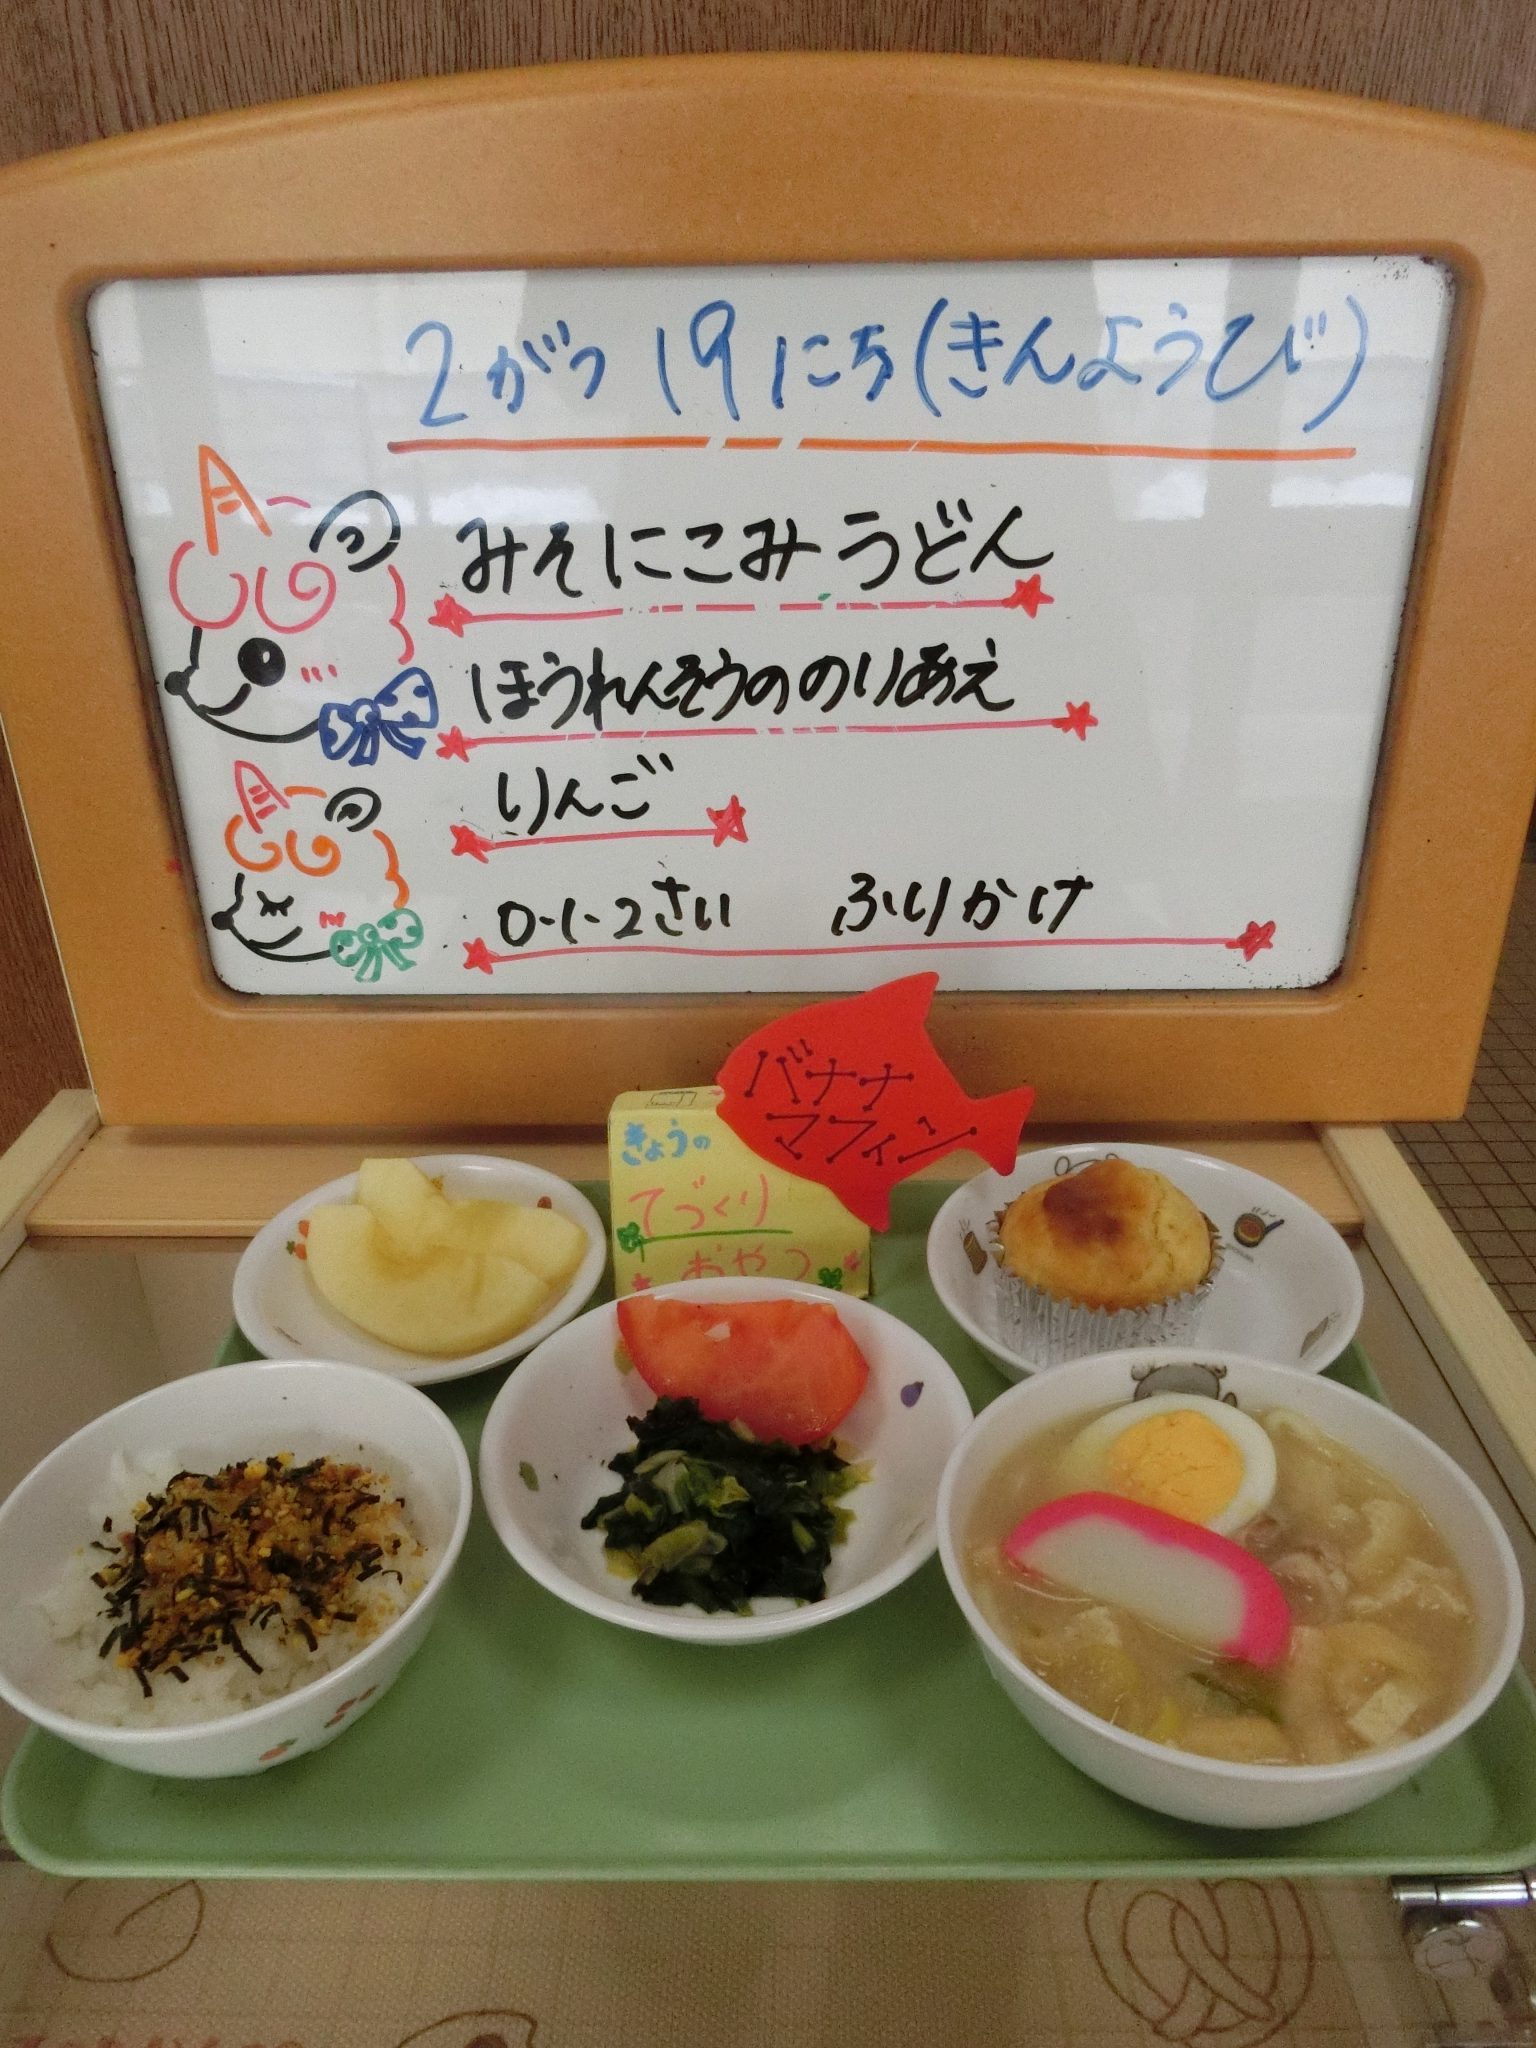 2がつ 19にち(きんようび)
みそにこみうどん
ほうれんそうののりあえ
りんご
0・1・2さい ふりかけ
バナナ
マフィン
きょうの
てづくり
おやつ